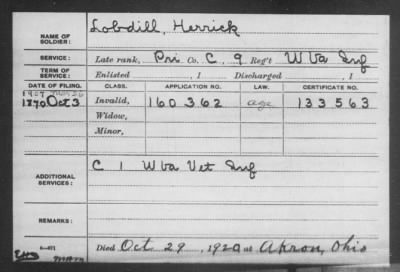 NAME OF SOLDIER: Lobdill, Herrick
SERVICE: Late rank, Pri Co. C, 9 Reg't W Va Inf
TERM OF SERVICE: Enlisted , 1 Discharged , 1
DATE OF FILING. CLASS. APPLICATION NO. LAW. CERTIFICATE NO.
1907
1879 Oct 3 Invalid, 160362 age 133563
Widow,
Minor,
ADDITIONAL SERVICES: C 1 W Va Vet Inf
REMARKS:
Died Oct. 29, 1920 at Akron, Ohio